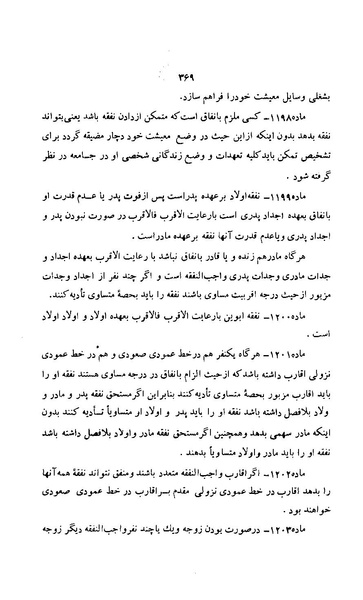 ۳۶۹
بشغلی وسایل معیشت خودرا فراهم سازد.
ماده۱۱۹۸- کسی ملزم بانفاق است‌که متمکن ازدادن نفقه باشد یعنی‌بتواند
نفقه بدهد بدون اینکه ازاین حیث در وضع معیشت خود دچار مضیقه گردد برای
تشخیص تمکن باید‌کلیه تعهدات و وضع زندگانی شخصی او در جامعه در نظر
گرفته شود .
ماده۱۱۹۹- نفقه‌اولاد برعهده پدراست پس ازفوت پدر یا عدم قدرت او
بانفاق بعهده اجداد پدری است بارعایت الاقرب فالاقرب در صورت نبودن پدر و
اجداد پدری ویاعدم قدرت آنها نفقه برعهده مادراست.
هرگاه مادرهم زنده و یا قادر بانفاق نباشد با رعایت الاقرب بعهده اجداد و
جدات مادری وجدات پدری واجب‌النفقه است و اگر چند نفر از اجداد وجدات
مزبور ازحیث درجه اقربیت مساوی باشند نفقه را باید بحصهٔ متساوی تأدیه‌کنند.
ماده۱۲۰۰- نفقه ابوین بارعایت الاقرب فالاقرب بعهده اولاد و اولاد اولاد
است .
ماده۱۲۰۱- هرگاه یکنفر هم درخط عمودی صعودی و هم در خط عمودی
نزولی اقارب داشته باشد که ازحیث الزام بانفاق در درجه مساوی هستند نفقه او را
باید اقارب مزبور بحصهٔ متساوی تأدیه‌کنند بنابراین اگرمستحق نفقه پدر و مادر و
ولاد بلافصل داشته باشد نفقه او را باید پدر و اولاد او متساویاً تـأدیه کنند بدون
اینکه مادر سهمی بدهد وهمچنین اگرمستحق نفقه مادر واولاد بلافصل داشته باشد
نفقه او را باید مادر واولاد متساویاً بدهند .
ماده۱۲۰۲- اگراقارب واجب‌النفقه متعدد باشند ومنفق نتواند نفقهٔ همه‌آنها
را بدهد اقارب در خط عمودی نزولی مقدم براقارب در خط عمودی صعودی
خواهند بود .
ماده۱۲۰۳- درصورت بودن زوجه ویك یاچند نفرواجب‌النفقه دیگر زوجه